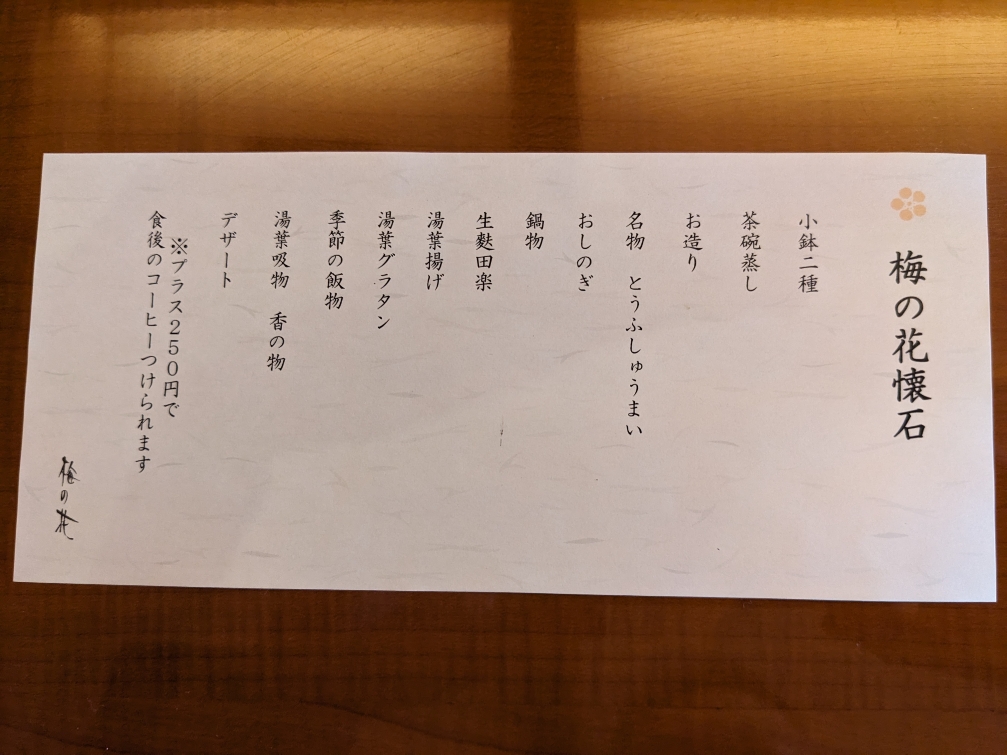 梅の花懐石
小鉢二種
茶碗蒸し
お造り
名物　とうふしゅうまい
おしのぎ
鍋物
生麩田楽
湯葉揚げ
湯葉グラタン
季節の飯物
湯葉吸物　香の物
デザート
※プラス２５０円で
食後のコーヒーつけられます
梅の花